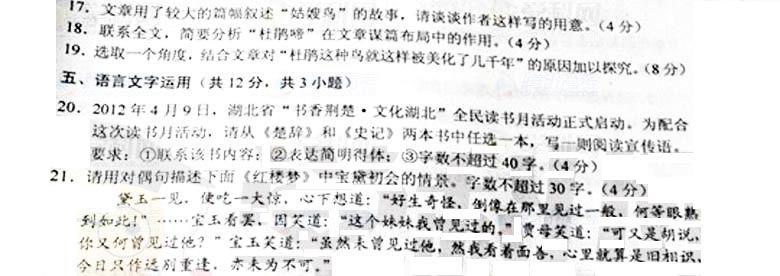 17. 文章用了较大的篇幅叙述“姑嫂鸟”的故事，请谈谈作者这样写的用意。（4分）
18. 联系全文，简要分析“杜鹃啼”在文章谋篇布局中的作用。（4分）
19. 选取一个角度，结合文章对“杜鹃这种鸟就这样被美化了几千年”的原因加以探究。（8分）
五、语言文字运用（共12分，共3小题）
20. 2012年4月9日，湖北省“书香荆楚·文化湖北”全民读书月活动正式启动。为配合
这次读书月活动，请从《楚辞》和《史记》两本书中任选一本，写一则阅读宣传语。
要求：①联系该书内容；②表达简明得体；③字数不超过40字。（4分）
21. 请用对偶句描述下面《红楼梦》中宝黛初会的情景。字数不超过30字。（4分）
黛玉一见，便吃一大惊，心下想道：“好生奇怪，倒像在那里见过一般，何等眼熟
到如此！”……宝玉看罢，因笑道：“这个妹妹我曾见过的。”贾母笑道：“可又是胡说，
你又何曾见过他？”宝玉笑道：“虽然未曾见过他，然我看着面善，心里就算是旧相识、
今日只作远别重逢，亦未为不可。”